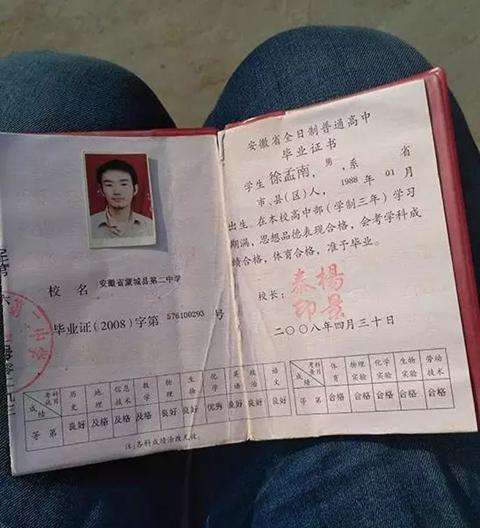 校 名 安徽省蒙城县第二中学
毕业证(2008)字第 576100293 号
考试科目 成绩 历史 地理 信息技术 数学 物理 生物 化学 英语 政治 语文
等第 良好 及格 及格 及格 良好 良好 优秀 良好 良好 良好
注:各科成绩涂改无效
安徽省全日制普通高中
毕业证书
学生 徐孟南, 男, 系 省
市、县(区)人, 1988 年 01 月
出生。在本校高中部(学制三年)学习
期满,思想品德表现合格,会考学科成
绩合格,体育合格,准予毕业。
校长: 楊景泰印
二〇〇八年四月三十日
考查科目 成绩 体育 物理实验 化学实验 生物实验 劳动技术
等第 合格 合格 合格 合格 合格